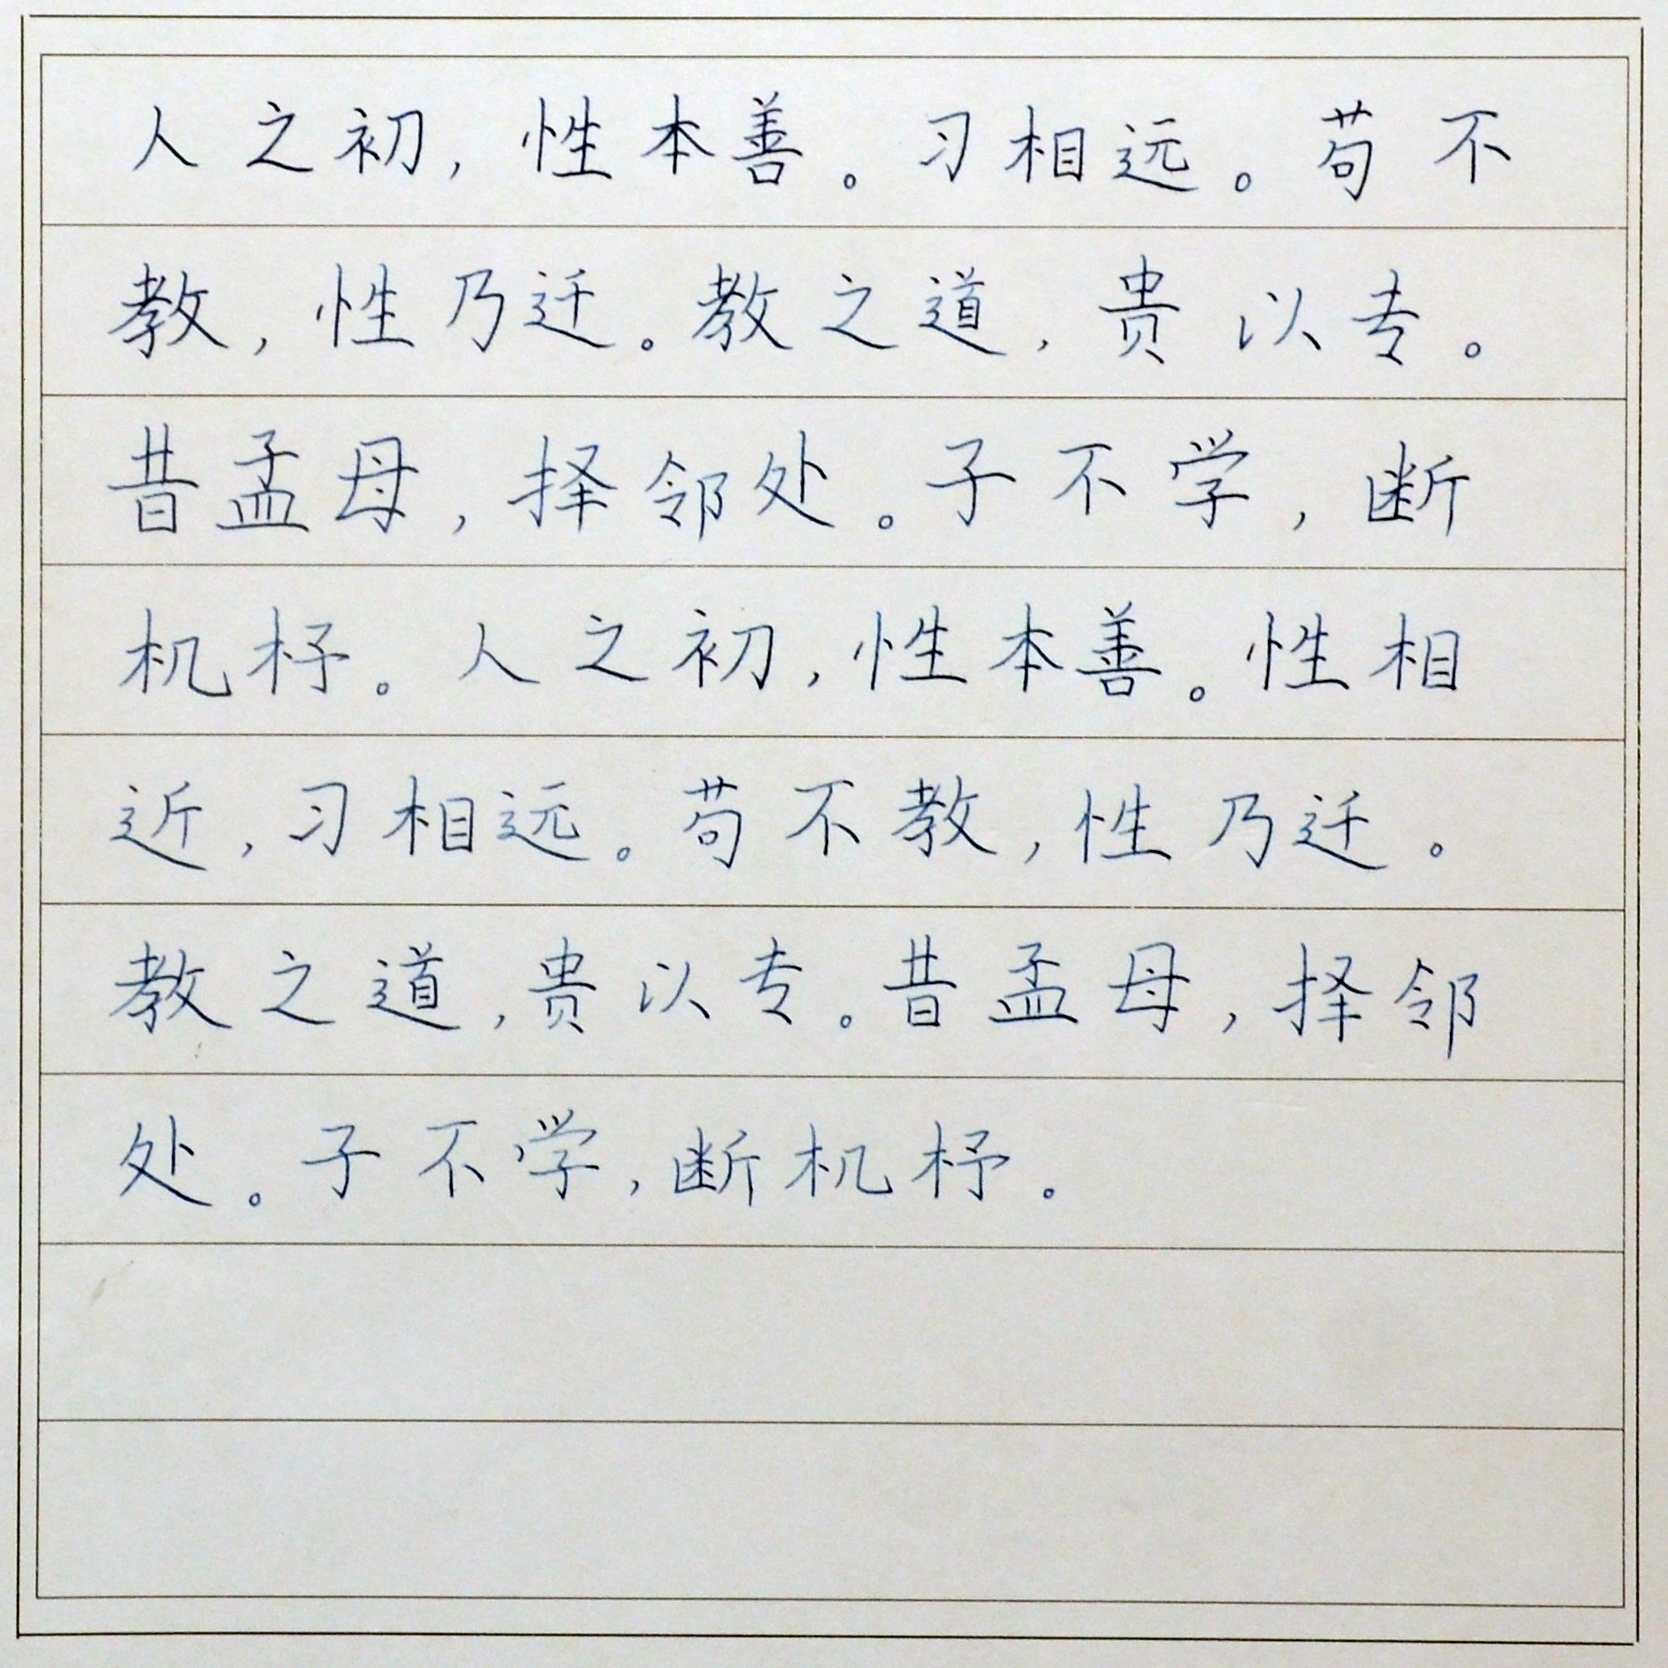 人之初，性本善。习相远。苟不
教，性乃迁。教之道，贵以专。
昔孟母，择邻处。子不学，断
机杼。人之初，性本善。性相
近，习相远。苟不教，性乃迁。
教之道，贵以专。昔孟母，择邻
处。子不学，断机杼。